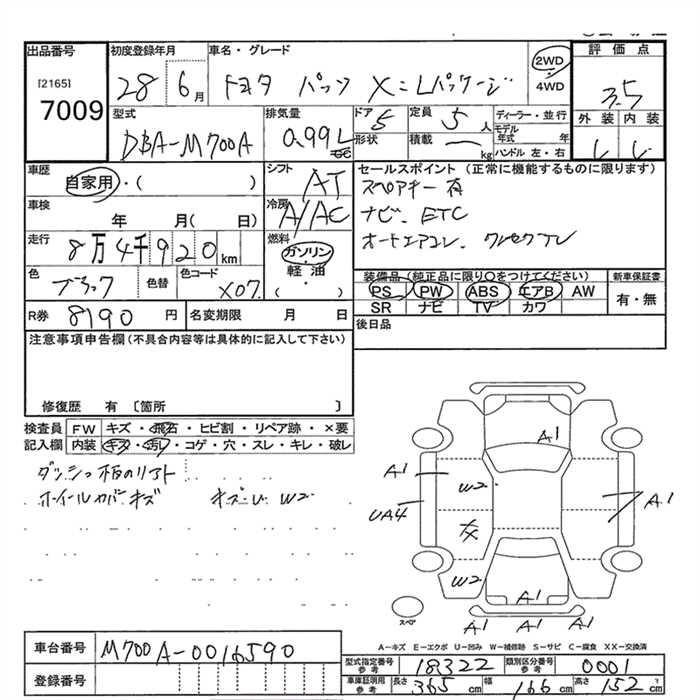 出品番号
[2165]
7009
初度登録年月
28 6月
車名・グレード
トヨタ パッソ X=Lパッケージ
2WD
4WD
評価点
3.5
型式
DBA-M700A
排気量
0.99L
ドア 5
形状
定員 5人
積載 ー kg
ディーラー・並行
モデル年式 年
ハンドル 左・右
外装 内装
車歴
自家用・( )
シフト
AT
車検
年 月( 日)
冷房
A/AC
走行
8万4千920km
燃料
ガソリン
軽油
( )
色
ブラック
色替
色コード
X07
セールスポイント (正常に機能するものに限ります)
スペアキー有
ナビ. ETC
オートエアコン. ワンセグTV
装備品(純正品に限り○をつけてください)
PS PW ABS エアB AW
SR ナビ TV カワ
新車保証書
有・無
R券 8190円
名変期限 月 日
後日品
注意事項申告欄(不具合内容等は具体的に記入して下さい)
修復歴 有 〔箇所 〕
検査員記入欄
FW キズ・飛石・ヒビ割・リペア跡・×要
内装 キズ・汚レ・コゲ・穴・スレ・キレ・破レ
ダッシュ板のリフト
ホイールカバーキズ キズU W2
A1
A1
W2
UA4
A1
W2
A1
A1 A1 A1
スペア
A-キズ E-エクボ U-凹み W-補修跡 S-サビ C-腐食 XX-交換済
車台番号
M700A-0016590
登録番号
型式指定番号 参考 18322
類別区分番号 参考 0001
車庫証明用 参考 長さ 365cm 幅 166cm 高さ 152cm